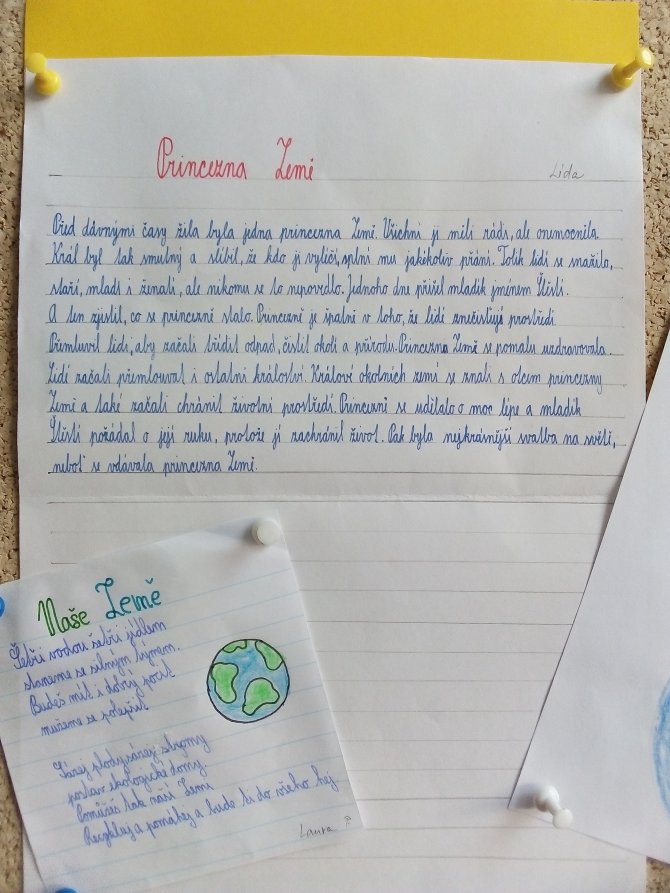 Princezna Země
Lída
Před dávnými časy žila byla jedna princezna Země. Všichni ji měli rádi, ale onemocněla.
Král byl tak smutný a slíbil, že kdo ji vyléčí, splní mu jakékoliv přání. Tolik lidí se snažilo,
staří, mladí i ženatí, ale nikomu se to nepovedlo. Jednoho dne přišel mladík jménem Štěstí.
A ten zjistil, co se princezně stalo. Princezně je špatně z toho, že lidé znečisťují prostředí.
Přemluvil lidi, aby začali třídit odpad, čistit okolí a přírodu. Princezna Země se pomalu uzdravovala.
Lidé začali přemlouvat i ostatní království. Králové okolních zemí se znali s otcem princezny
Země a také začali chránit životní prostředí. Princezně se udělalo o moc lépe a mladík
Štěstí požádal o její ruku, protože jí zachránil život. Pak byla nejkrásnější svatba na světě,
neboť se vdávala princezna Země.
Naše Země
Šetři vodou šetři jídlem
staneme se silným týmem.
Budeš mít i dobrý pocit
můžeme se polepšit
stromy
postav ekologické domy.
Pomůžeš tak naší Zemi
Recykluj a pomáhej a bude ti do všeho hej
Laura P.